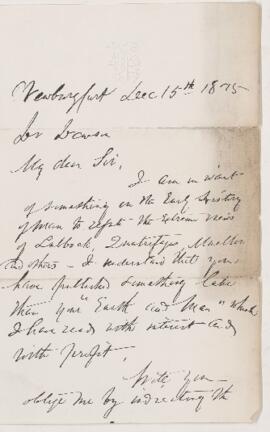 Newburyport Dec 15th 1875
Dr Dawson
My dear Sir,
I am in want
of something on the Early History
of man to refute the extreme views
of Lubbock, Quatrefages, Mueller
and others - I understand that you
have published something later
than your "Earth and Man" which
I have read with interest and
with profit.
Will you
oblige me by indicating the